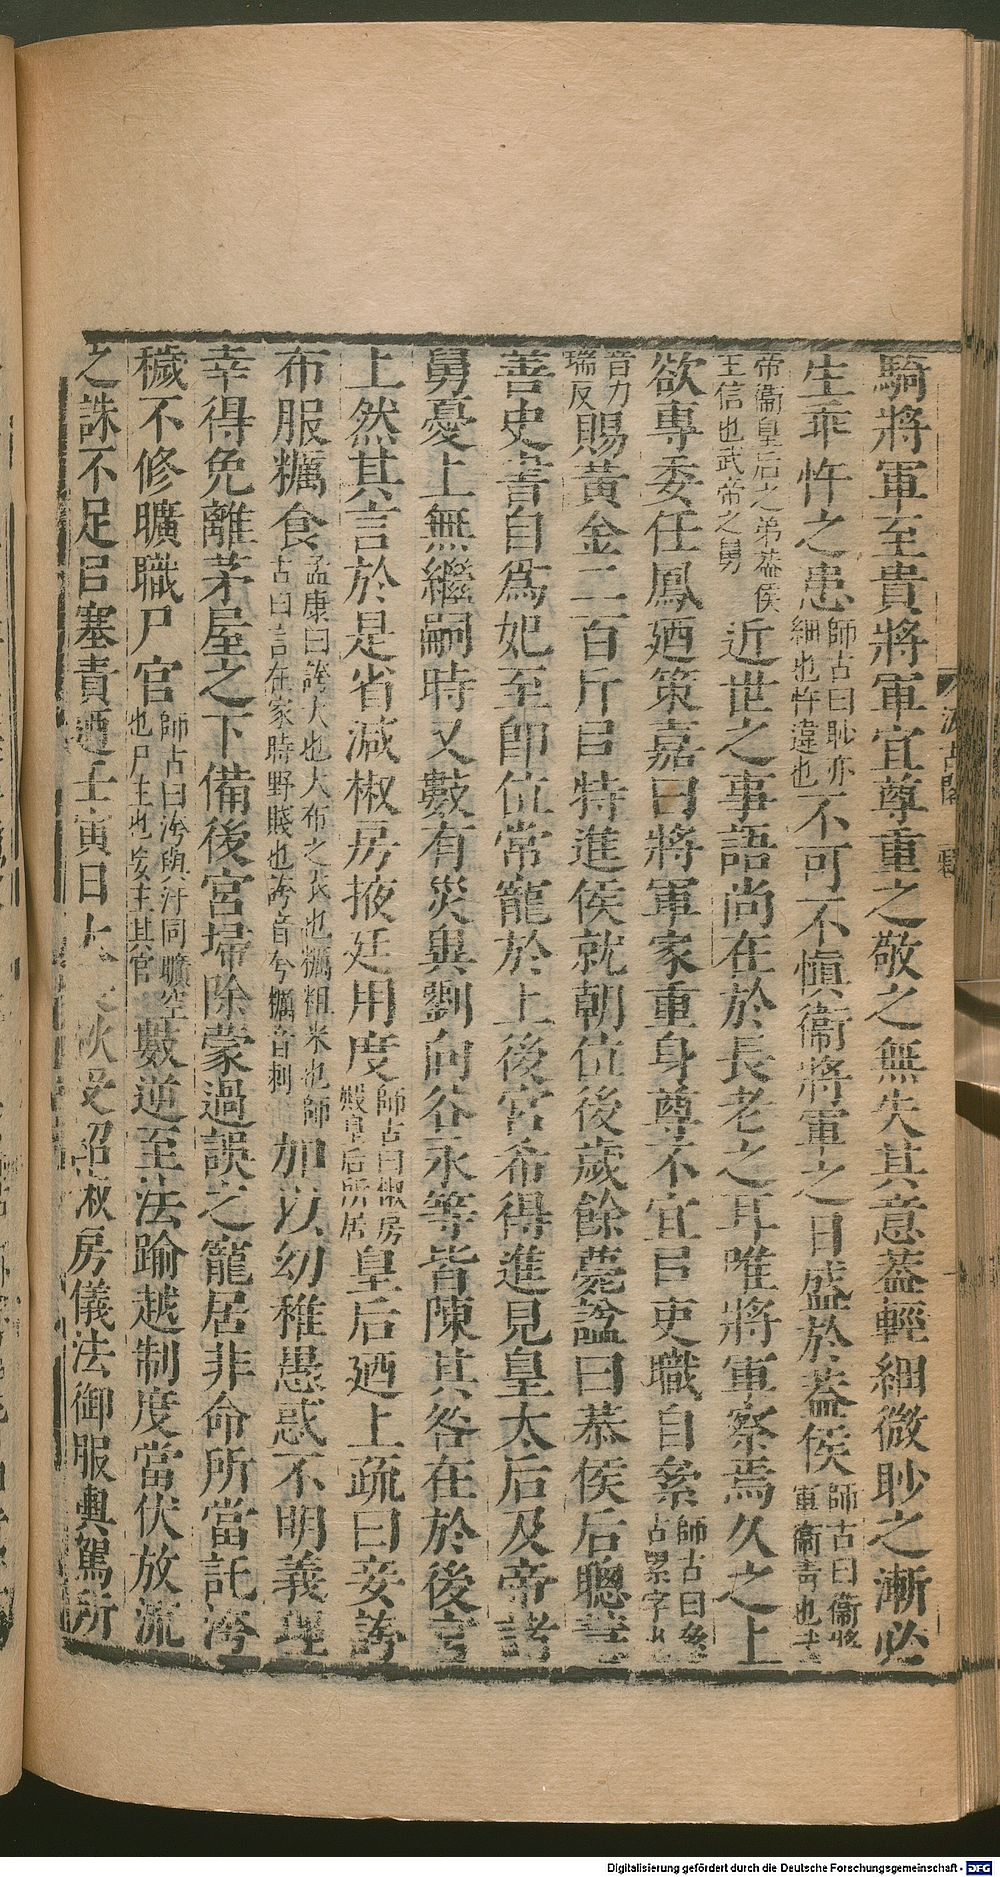 騎將軍至貴將軍宜尊重之敬之無失其意葢輕細微眇之漸必
生乖忤之患師古曰眇亦細也忤違也不可不愼衞將軍之日盛於葢侯師古曰衞將軍衞靑也武
帝衞皇后之弟葢侯王信也武帝之舅近世之事語尚在於長老之耳唯將軍察焉久之上
欲專委任鳳廼策嘉曰將軍家重身尊不宜㠯吏職自絫師古曰絫古累字也
音力瑞反賜黃金二百斤㠯特進侯就朝位後歲餘薨諡曰恭侯后聰慧
善史書自爲妃至卽位常寵於上後宮希得進見皇太后及帝諸
舅憂上無繼嗣時又數有災異劉向谷永等皆陳其咎在於後宮
上然其言於是省減椒房掖廷用度師古曰椒房殿皇后所居皇后廼上疏曰妾誇
布服糲食孟康曰誇大也大布之衣也糲粗米也師古曰言在家時野賤也誇音夸糲音刺加㠯幼稚愚惑不明義理
幸得免離茅屋之下備後宮埽除蒙過誤之寵居非命所當託洿
穢不修曠職尸官師古曰洿與汙同曠空也尸主也妄主其官數逆至法踰越制度當伏放流
之誅不足㠯塞責迺壬寅日大長秋受詔椒房儀法御服輿駕所
汲古閣
Digitalisierung gefördert durch die Deutsche Forschungsgemeinschaft - DFG